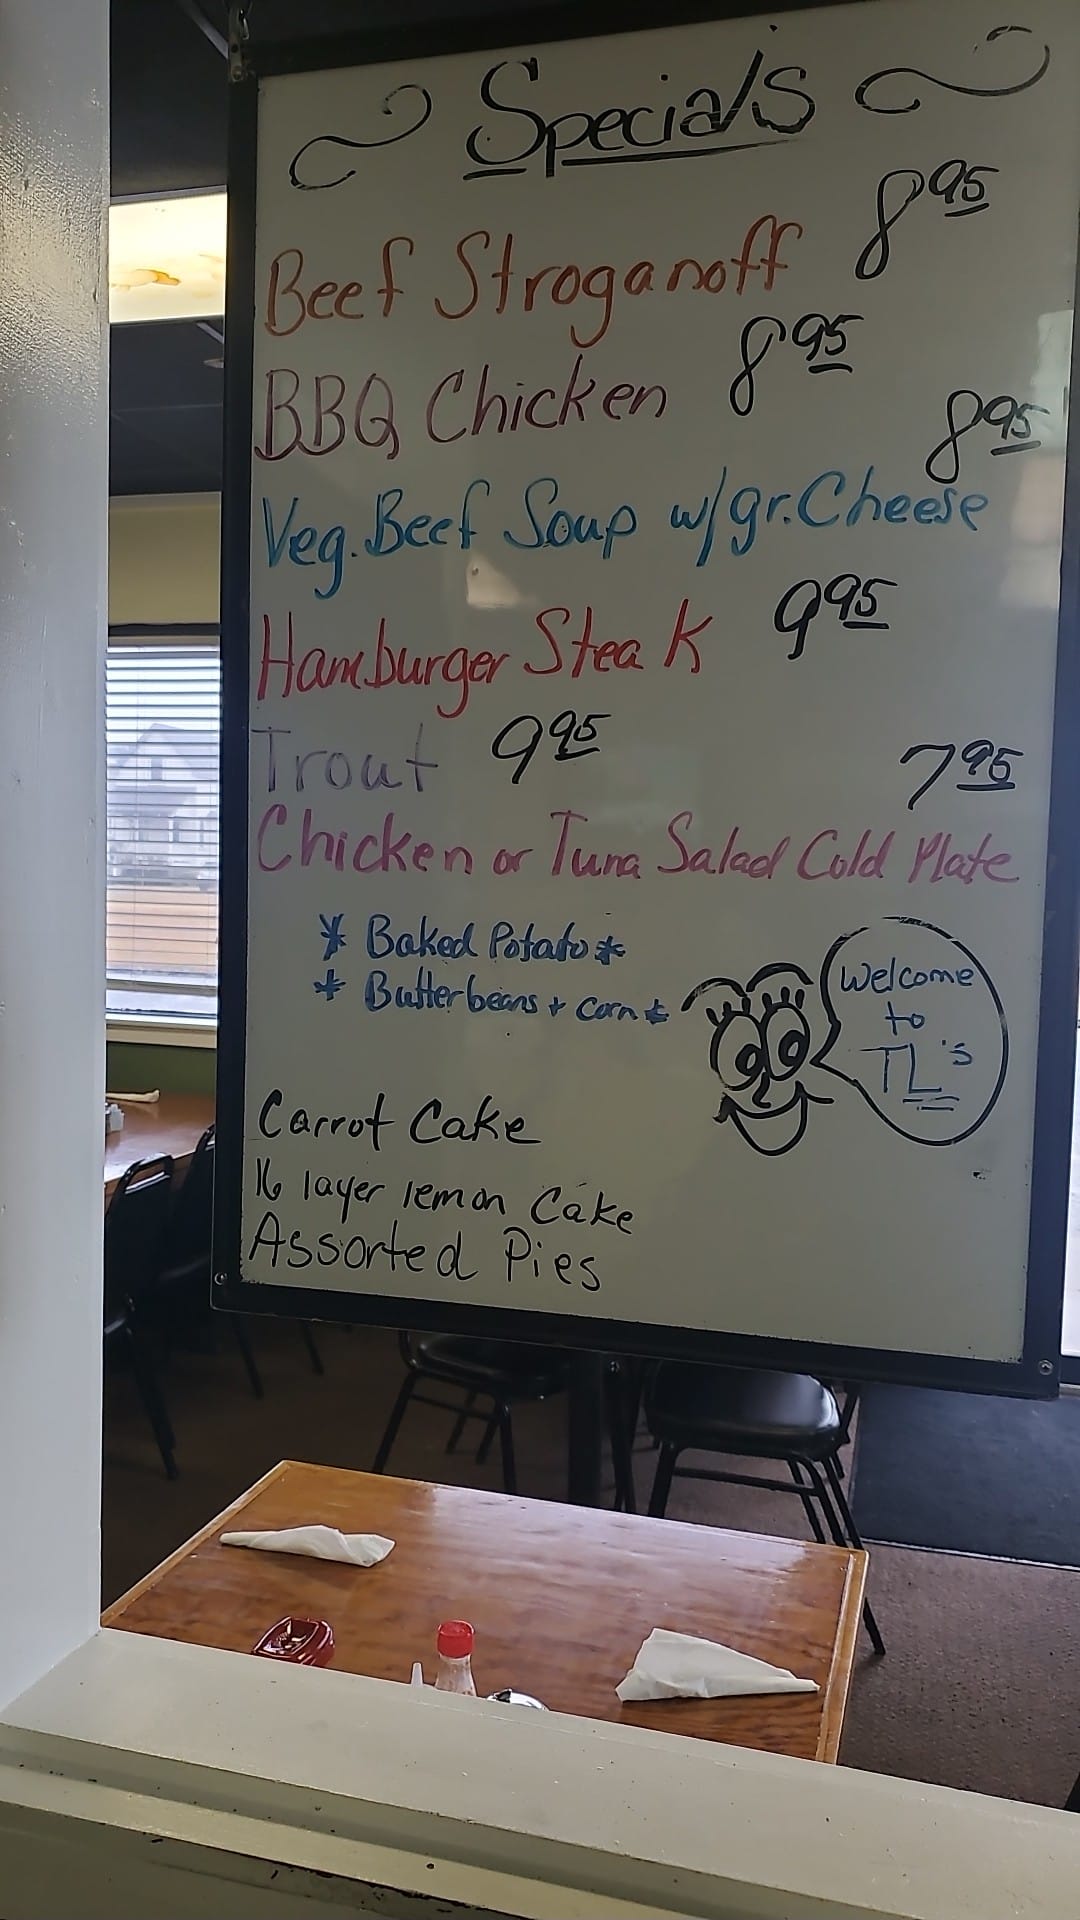 Specials
Beef Stroganoff 8 95
BBQ Chicken 8 95
Veg. Beef Soup w/gr. Cheese 8 95
Hamburger Steak 9 95
Trout 9 95
Chicken or Tuna Salad Cold Plate 7 95
* Baked Potato *
* Butterbeans + Corn *
Welcome
to
TL's
Carrot Cake
16 layer lemon Cake
Assorted Pies